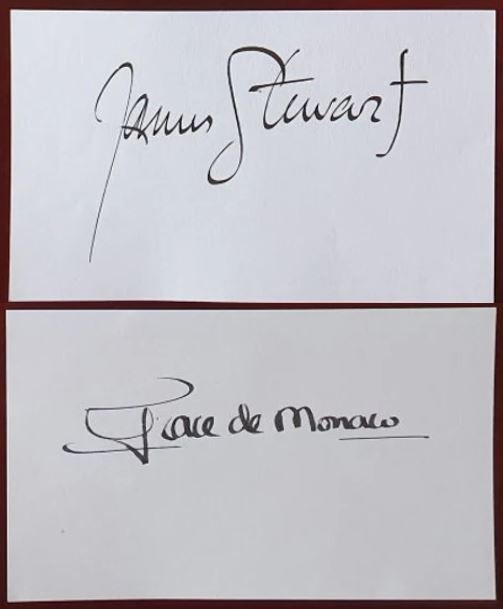 James Stewart
Grace de Monaco